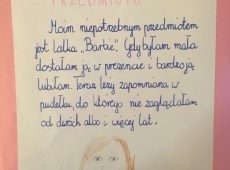 PRZEDMIOTU
Moim niepotrzebnym przedmiotem
jest lalka „Barbie". Gdy byłam mała
dostałam ją w prezencie i bardzo ją
lubiłam. Teraz leży zapomniana w
pudełku, do którego nie zaglądałam
od dwóch albo i więcej lat.